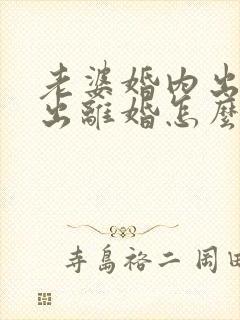 老婆婚内出
出離婚怎麼
寺島裕二 岡田